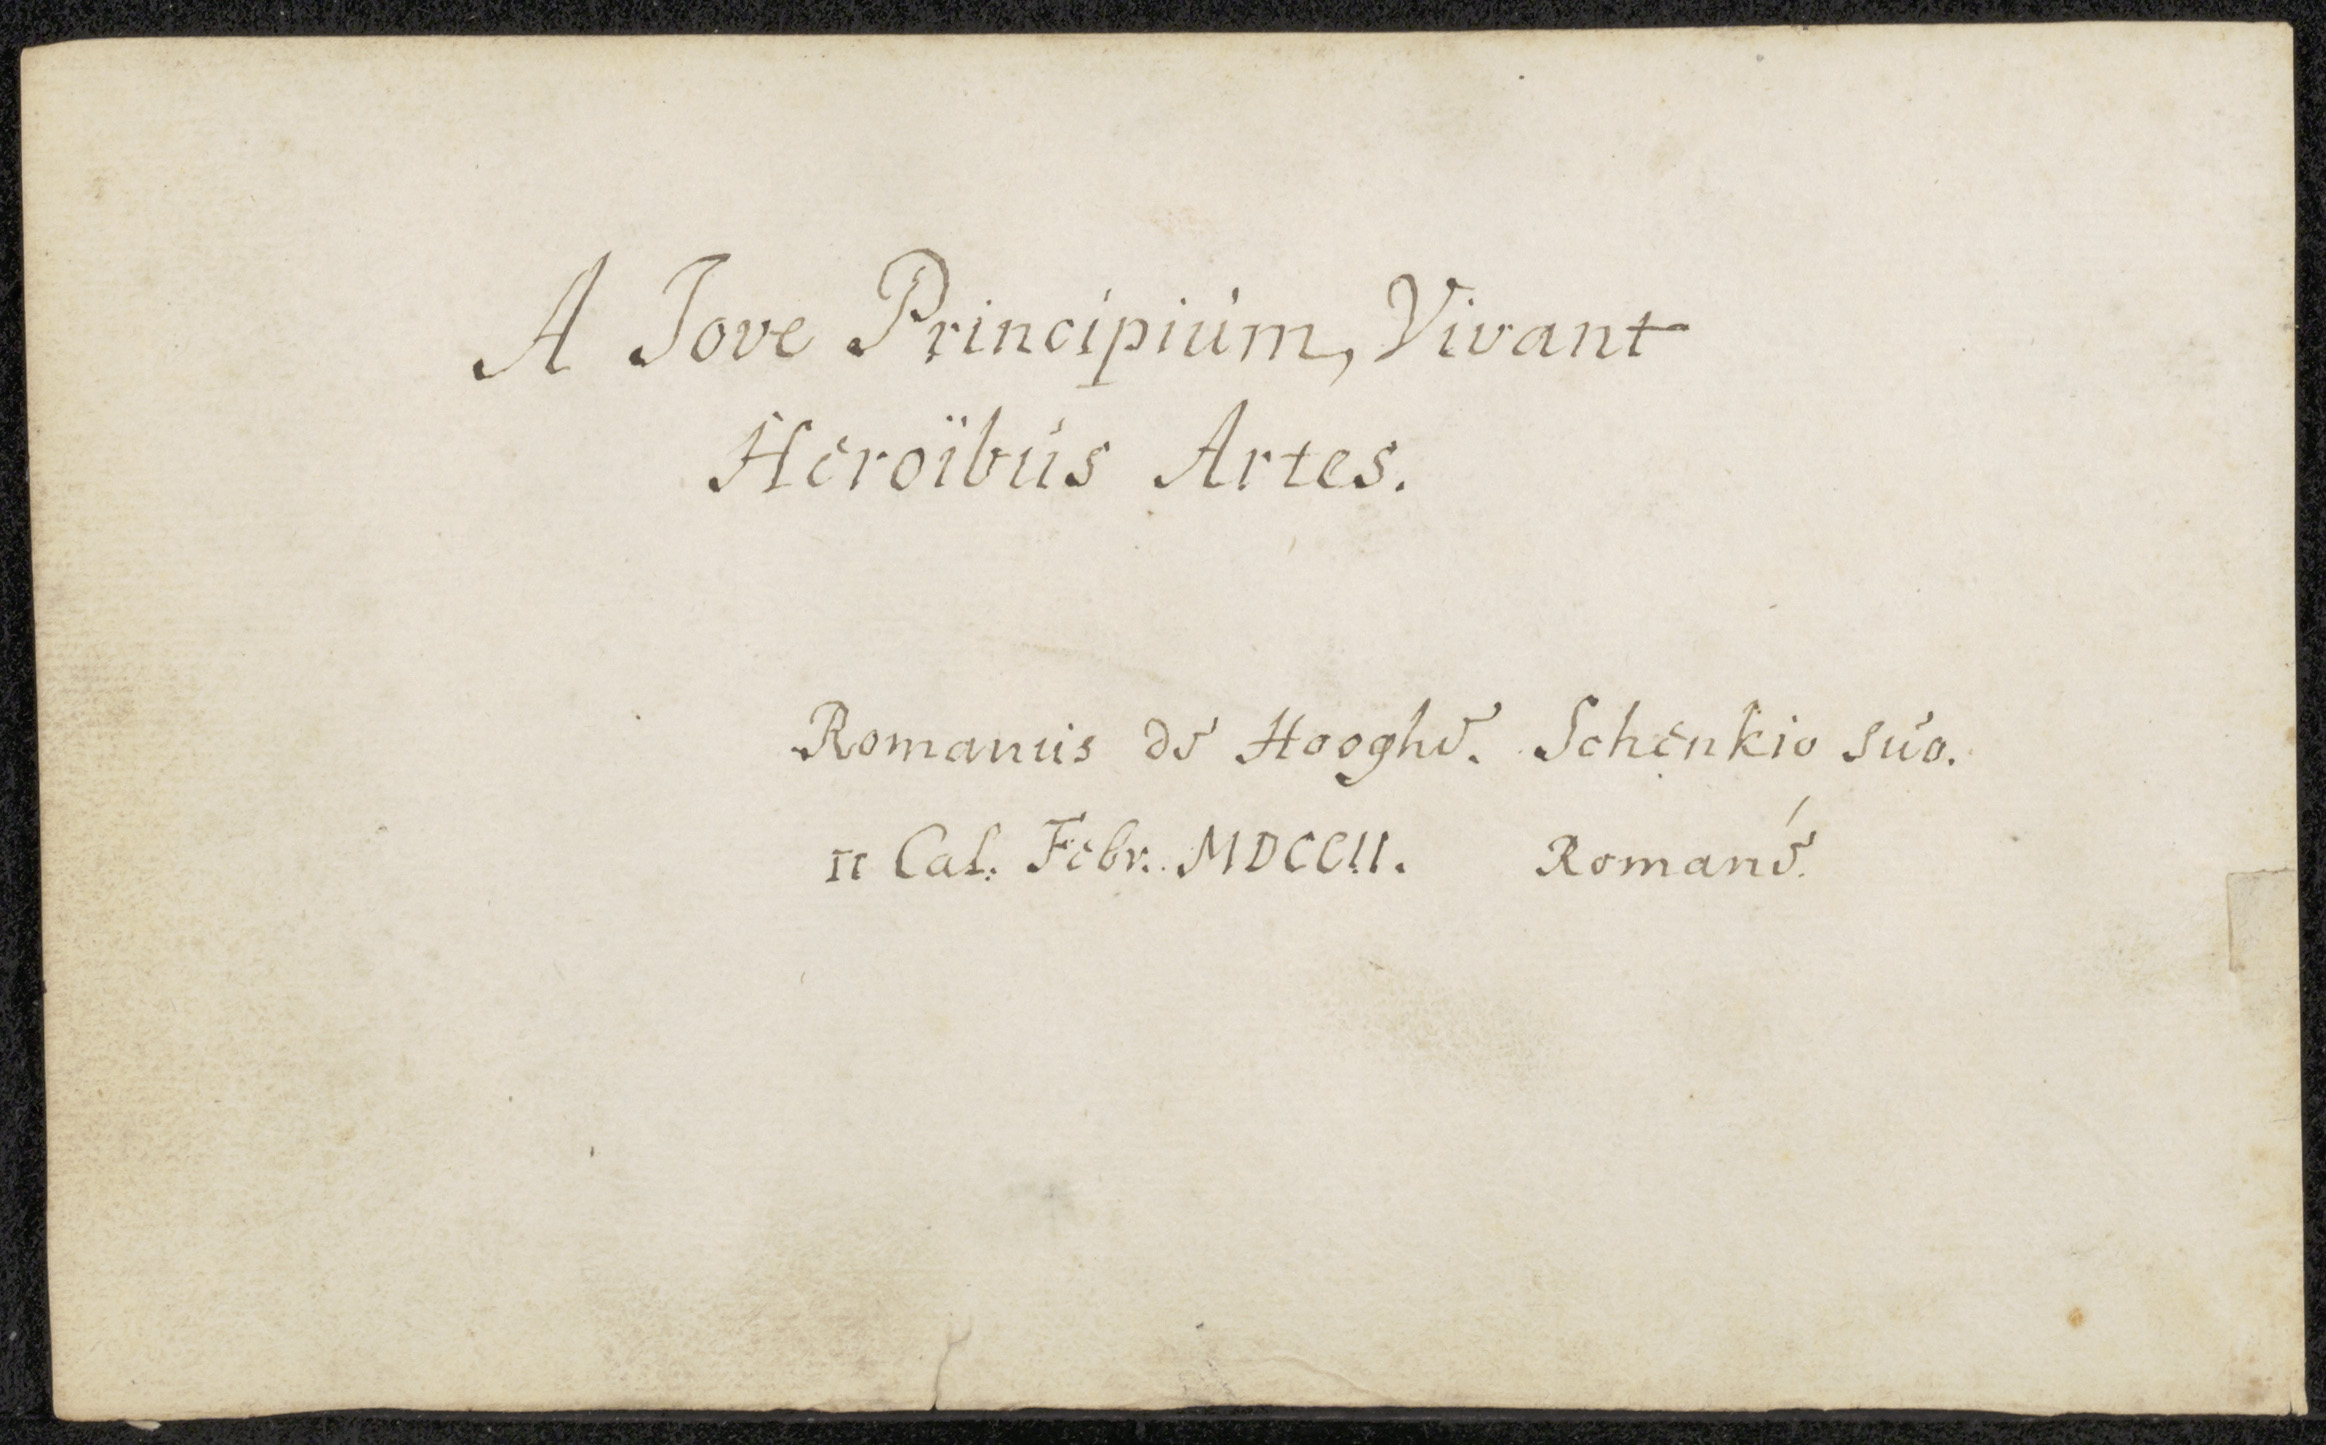 A Jove Principiúm, Vivant
Heroïbús Artes.
Romanus de Hooghe. Schenkio súo.
II Cal. Febr. MDCCII. Romané.